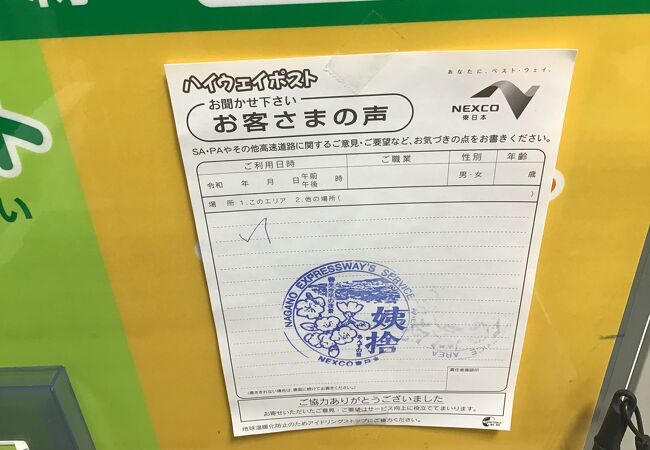 ハイウェイポスト
お聞かせ下さい
お客さまの声
あなたに、ベスト・ウェイ。
NEXCO
東日本
SA・PAやその他高速道路に関するご意見・ご要望など、お気づきの点をお書きください。
ご利用日時 ご職業 性別 年齢
令和 年 月 日 午前 午後 時 男・女 歳
場所 1.このエリア 2.他の場所( )
NAGANO EXPRESSWAY'S SERVICE AREA
姨捨
NEXCO東日本
ICE AREA
責任者確認印
(書ききれない場合は、裏面に続けてお書きください。)
ご協力ありがとうございました
お寄せいただいたご意見・ご要望はサービス向上に役立ててまいります。
地球温暖化防止のためアイドリングストップにご協力ください。
い